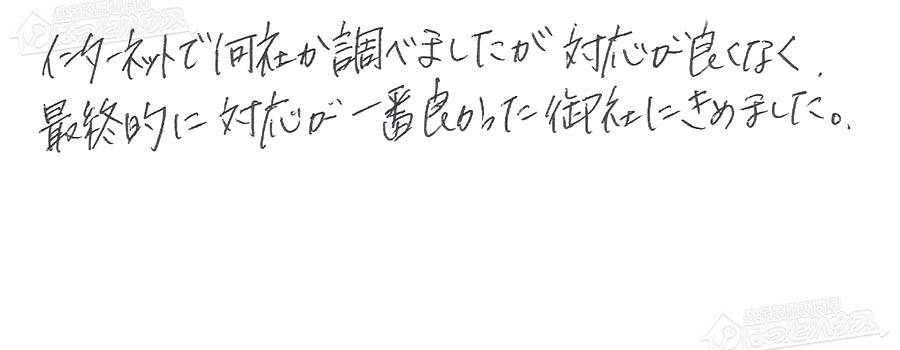 インターネットで何社か調べましたが対応が良くなく、
最終的に対応が一番良かった御社にきめました。
ほっとハウス